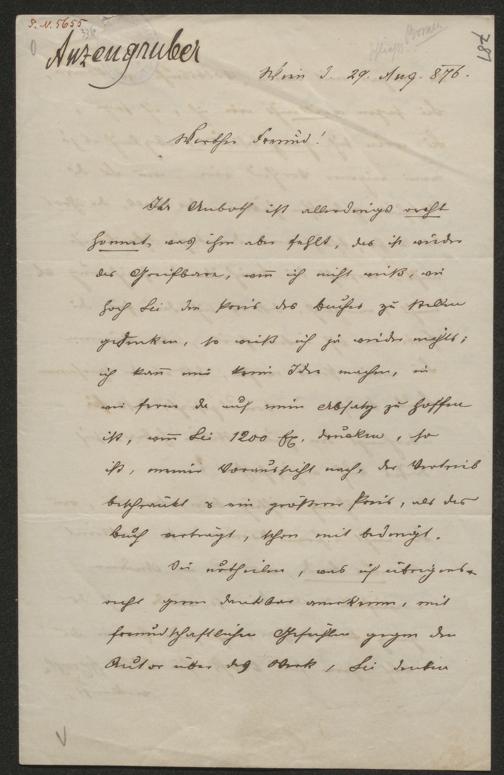 I. N. 5655
Anzengruber
187
Wien d. 29. Aug. 876.
Werther Freund!
Ihr Anboth ist allerdings recht
honnet, was ihm aber fehlt, das ist wieder
das Greifbare, wenn ich nicht weiß, wie
hoch Sie den Preis des Buches zu stellen
gedenken, so weiß ich ja wieder nichts;
ich kann mir keine Idee machen, in
wie ferne da auf einen Absatz zu hoffen
ist, wenn Sie 1200 Ex. drucken, so
ist, meiner Voraussicht nach, der Vertrieb
beschränkt & ein größerer Preis, als das
Buch verträgt, schon mit bedingt.
Sie urtheilen, was ich übrigens
recht gern dankbar anerkenne, mit
freundschaftlichen Gefühlen gegen den
Autor über das Werk, Sie denken